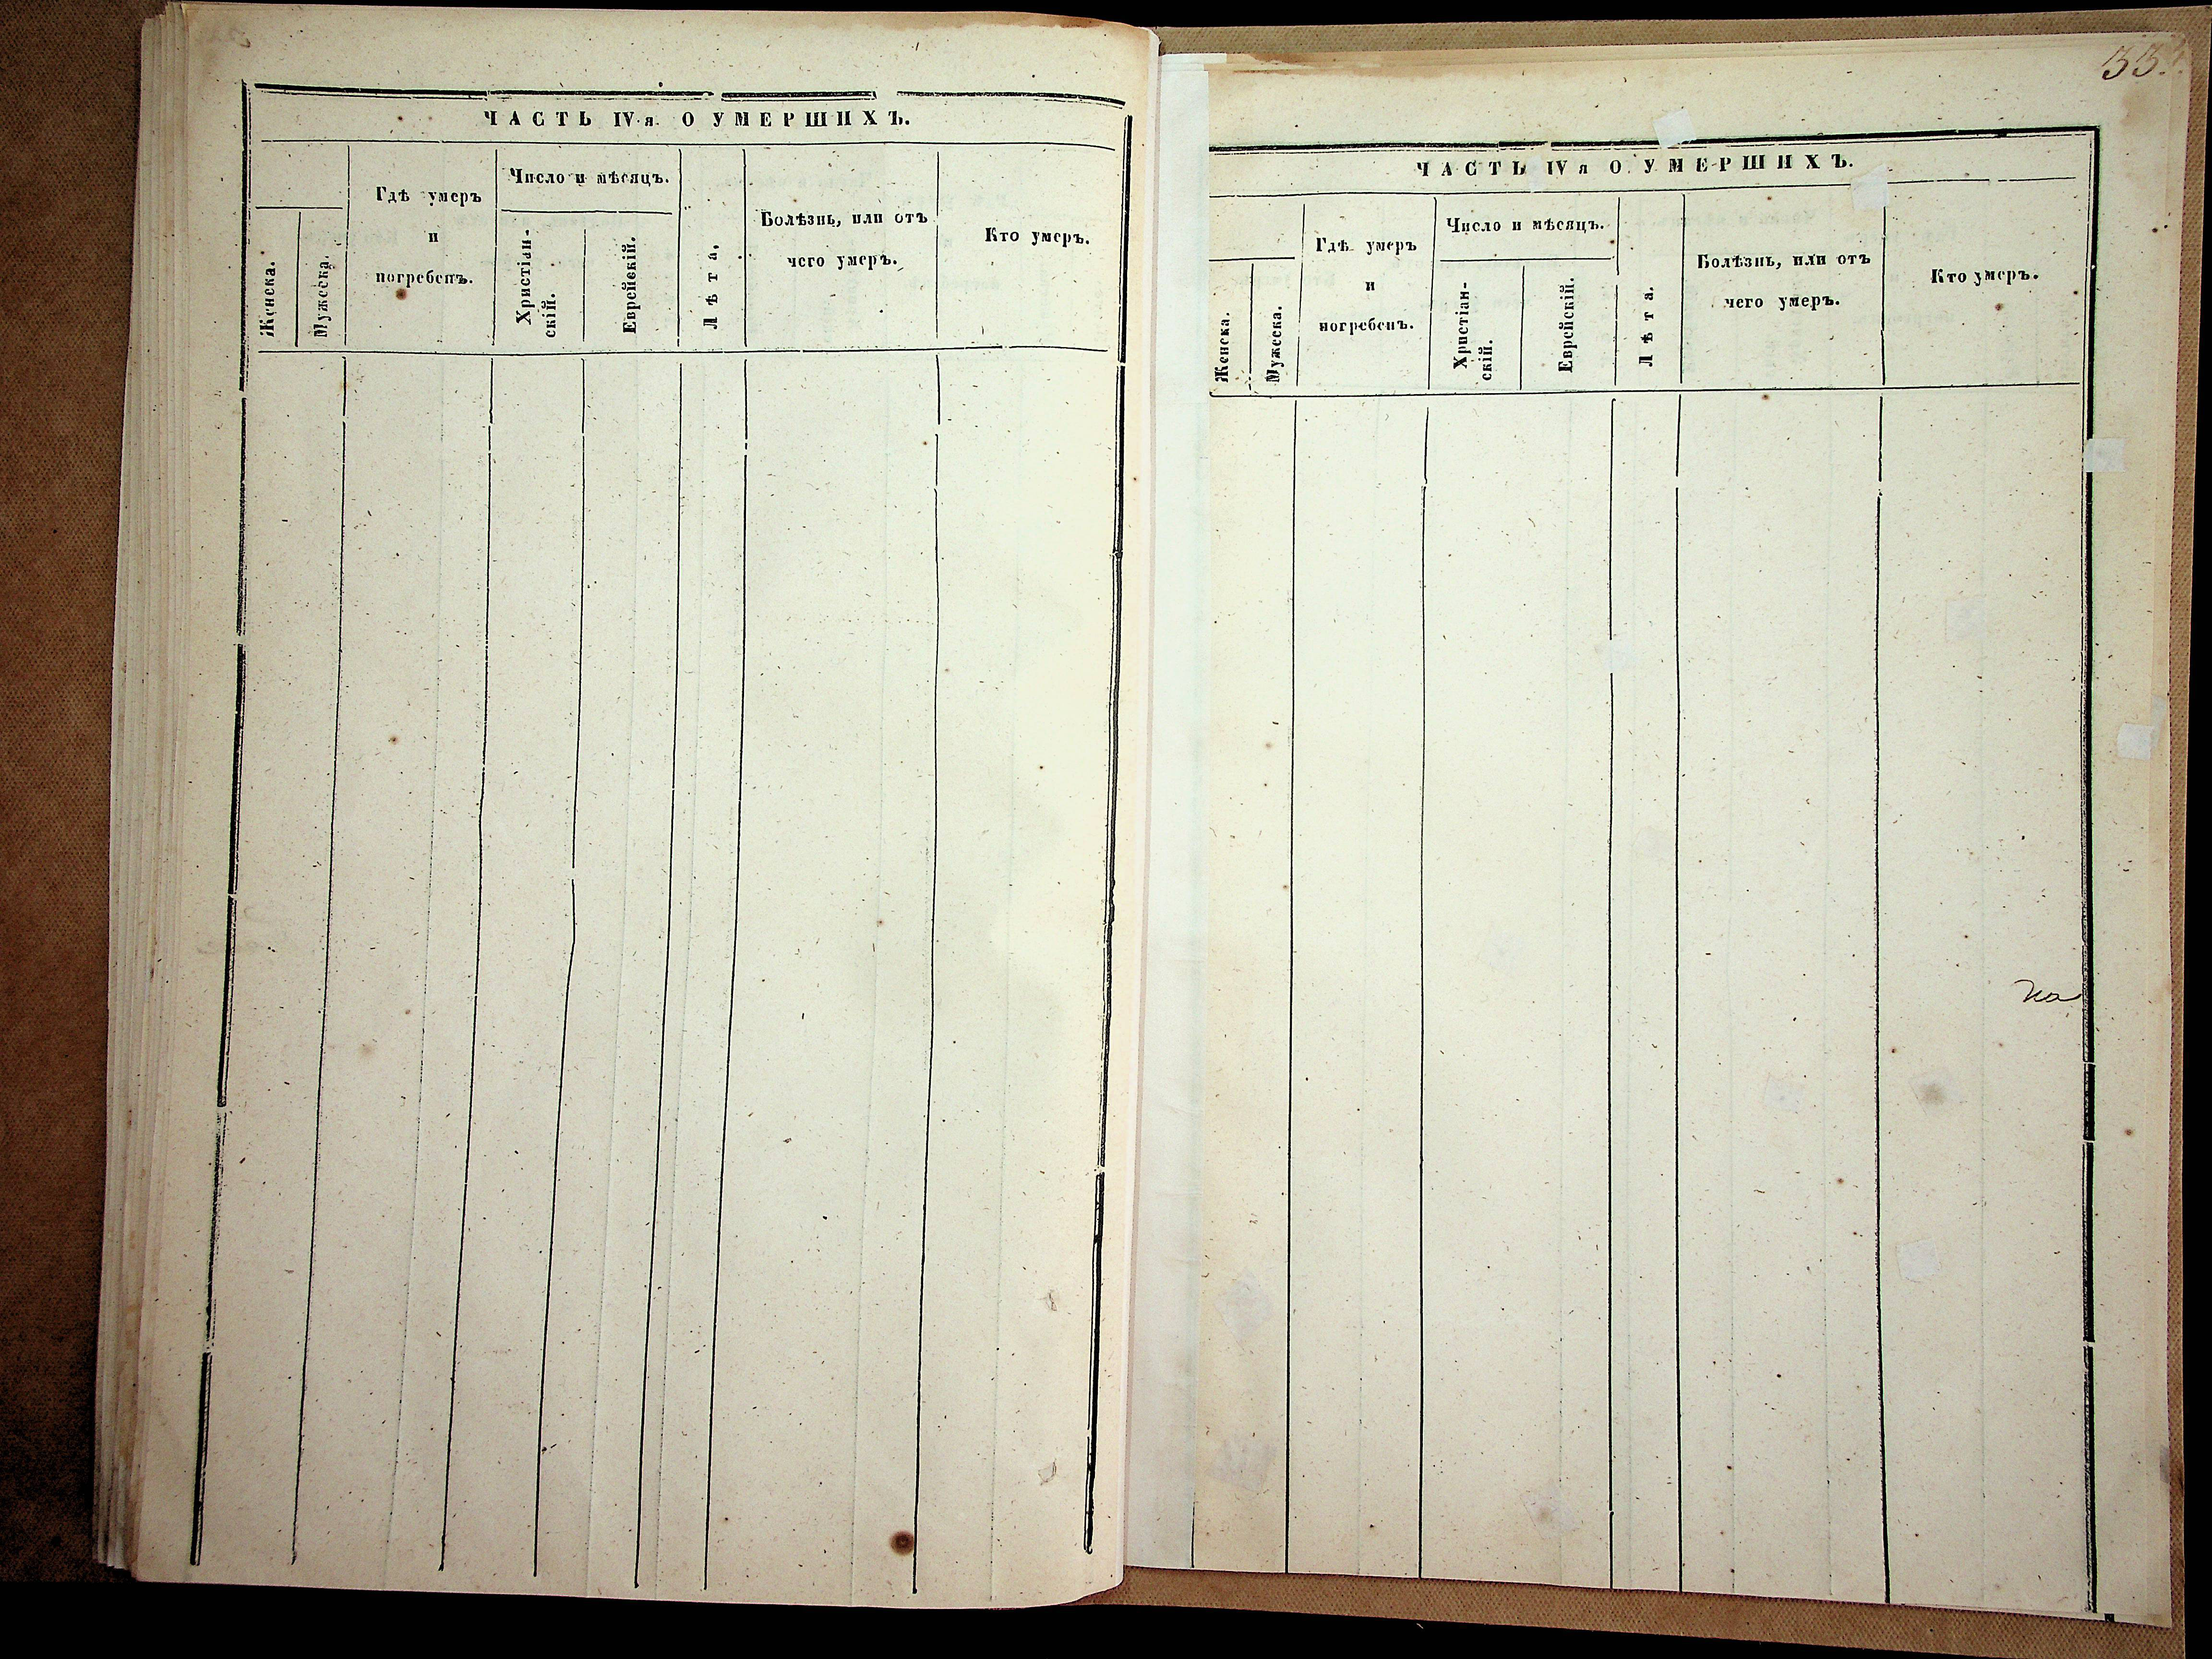 ЧАСТЬ IV я. О УМЕРШИХЪ.
Женска.
Мужеска.
Гдѣ умеръ
и
погребенъ.
Число и мѣсяцъ.
Христіан-
скій.
Еврейскій.
Лѣта.
Болѣзнь, или отъ
чего умеръ.
Кто умеръ.
ЧАСТЬ IV я О УМЕРШИХЪ.
Женска.
Мужеска.
Гдѣ умеръ
и
погребенъ.
Число и мѣсяцъ.
Христіан-
скій.
Еврейскій.
Лѣта.
Болѣзнь, или отъ
чего умеръ.
Кто умеръ.